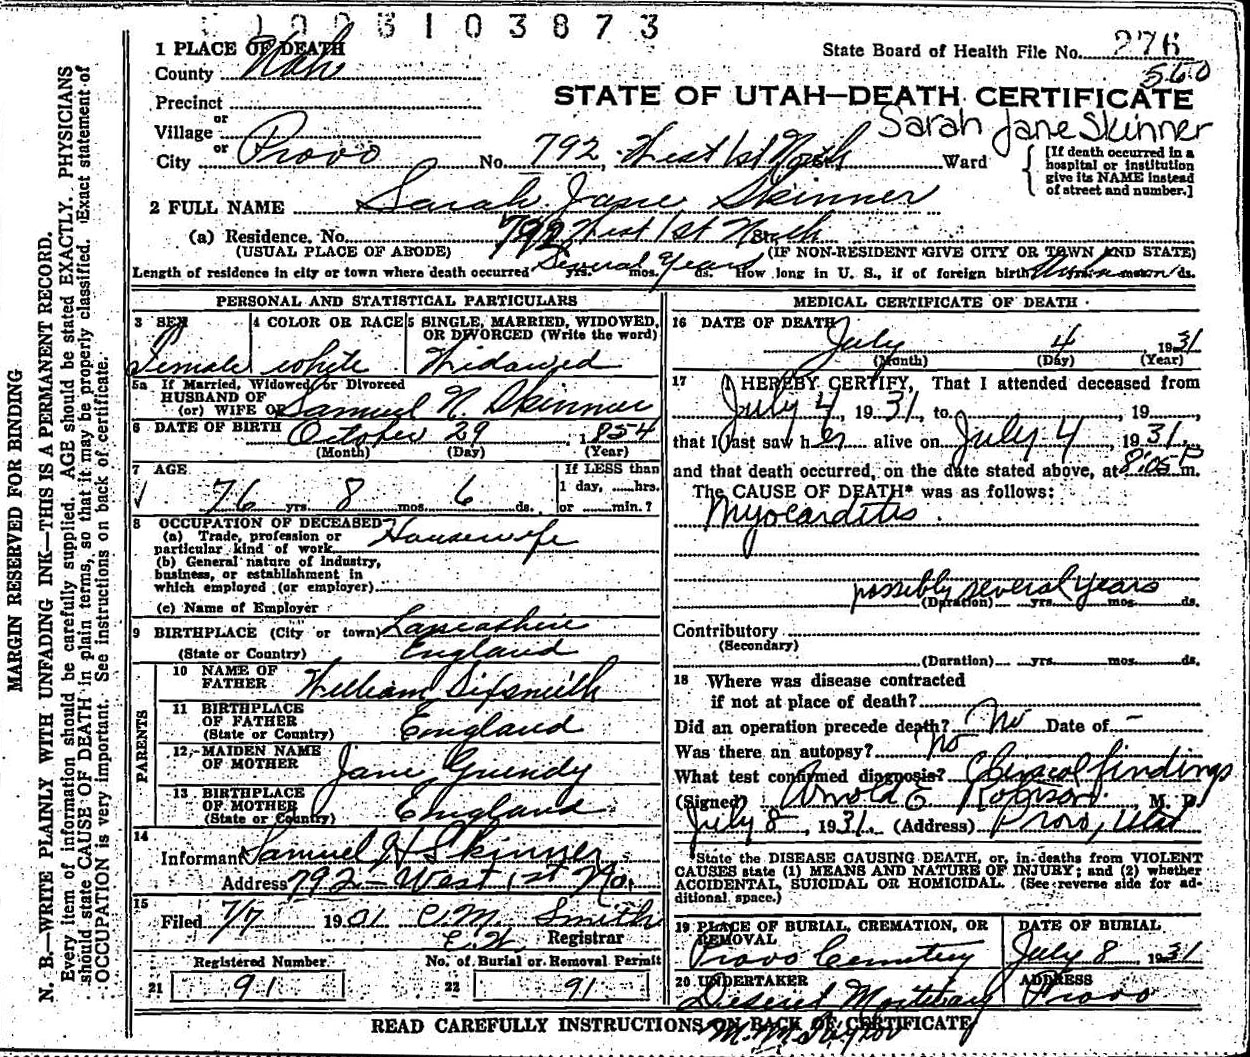 1003103873
1 PLACE OF DEATH
State Board of Health File No. 276
County Utah
560
Precinct
STATE OF UTAH—DEATH CERTIFICATE
or
Village
Sarah Jane Skinner
or
City Provo No. 792 West 1st North St. Ward
[If death occurred in a hospital or institution give its NAME instead of street and number.]
2 FULL NAME Sarah Jane Skinner
(a) Residence. No. 792 West 1st North St.
(USUAL PLACE OF ABODE) (IF NON-RESIDENT GIVE CITY OR TOWN AND STATE)
Length of residence in city or town where death occurred Several Years yrs. mos. ds. How long in U. S., if of foreign birth Unknown ds.
PERSONAL AND STATISTICAL PARTICULARS
3 SEX
Female
4 COLOR OR RACE
white
5 SINGLE, MARRIED, WIDOWED,
OR DIVORCED (Write the word)
Widowed
5a If Married, Widowed or Divorced
HUSBAND OF
(or) WIFE OF Samuel N. Skinner
6 DATE OF BIRTH October 29 1854
(Month) (Day) (Year)
7 AGE
76 yrs. 8 mos. 6 ds.
If LESS than
1 day, hrs.
or min.?
8 OCCUPATION OF DECEASED
(a) Trade, profession or
particular kind of work Housewife
(b) General nature of industry,
business, or establishment in
which employed (or employer)
(c) Name of Employer
9 BIRTHPLACE (City or town) Lancashire
(State or Country) England
PARENTS
10 NAME OF
FATHER William Sixsmith
11 BIRTHPLACE
OF FATHER
(State or Country) England
12 MAIDEN NAME
OF MOTHER Jane Grundy
13 BIRTHPLACE
OF MOTHER
(State or Country) England
14
Informant Samuel H Skinner
Address 792 - West 1st No.
15
Filed 7/7 1931 C.M. Smith
E.H. Registrar
Registered Number. No. of Burial or Removal Permit
21 91 22 91
MEDICAL CERTIFICATE OF DEATH
16 DATE OF DEATH
July 4, 1931
(Month) (Day) (Year)
17 I HEREBY CERTIFY, That I attended deceased from
July 4, 1931, to , 19 ,
that I last saw her alive on July 4, 1931,
and that death occurred, on the date stated above, at 8:05 P m.
The CAUSE OF DEATH* was as follows:
Myocarditis.
possibly several years
(Duration) yrs. mos. ds.
Contributory
(Secondary)
(Duration) yrs. mos. ds.
18 Where was disease contracted
if not at place of death?
Did an operation precede death? No Date of -
Was there an autopsy? no
What test confirmed diagnosis? Clinical findings
(Signed) Arnold E Robison, M. D.
July 8, 1931. (Address) Provo, Utah
*State the DISEASE CAUSING DEATH, or, in deaths from VIOLENT
CAUSES state (1) MEANS AND NATURE OF INJURY; and (2) whether
ACCIDENTAL, SUICIDAL OR HOMICIDAL. (See reverse side for ad-
ditional space.)
19 PLACE OF BURIAL, CREMATION, OR
REMOVAL
Provo Cemetery
DATE OF BURIAL
July 8, 1931
20 UNDERTAKER
Deseret Mortuary
ADDRESS
Provo
READ CAREFULLY INSTRUCTIONS ON BACK OF CERTIFICATE
MARGIN RESERVED FOR BINDING
N. B.—WRITE PLAINLY WITH UNFADING INK—THIS IS A PERMANENT RECORD.
Every item of information should be carefully supplied. AGE should be stated EXACTLY. PHYSICIANS
should state CAUSE OF DEATH in plain terms, so that it may be properly classified. Exact statement of
OCCUPATION is very important. See instructions on back of certificate.